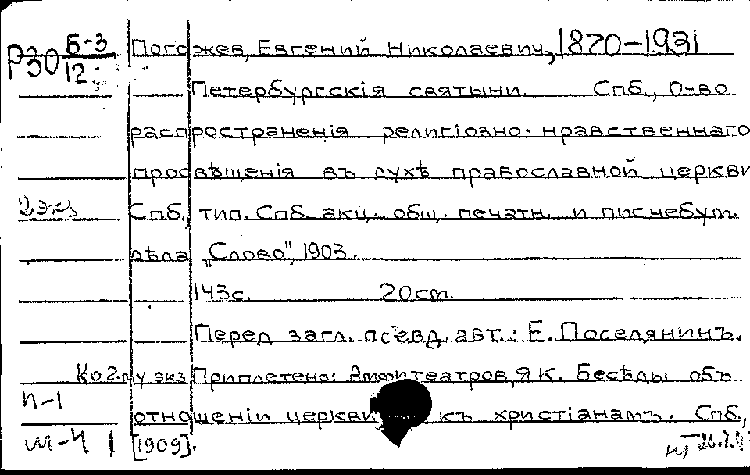 Р30 Б-3/12 Погожев, Евгений Николаевич, 1870-1931
Петербургскія святыни. Спб., О-во
распространенія религіозно-нравственнаго
просвѣщенія въ духѣ православной церкви
2 экз Спб., тип. Спб. акц. общ. печатн. и писчебум.
дѣла "Слово", 1903.
143с. 20cm.
Перед загл. псевд. авт.: Е. Поселянинъ.
Ко 2-му экз Приплетено: Амфитеатров, Я.К. Бесѣды объ
п-1 отношеніи церкви къ христіанамъ. Спб.,
ш-4 [1909].